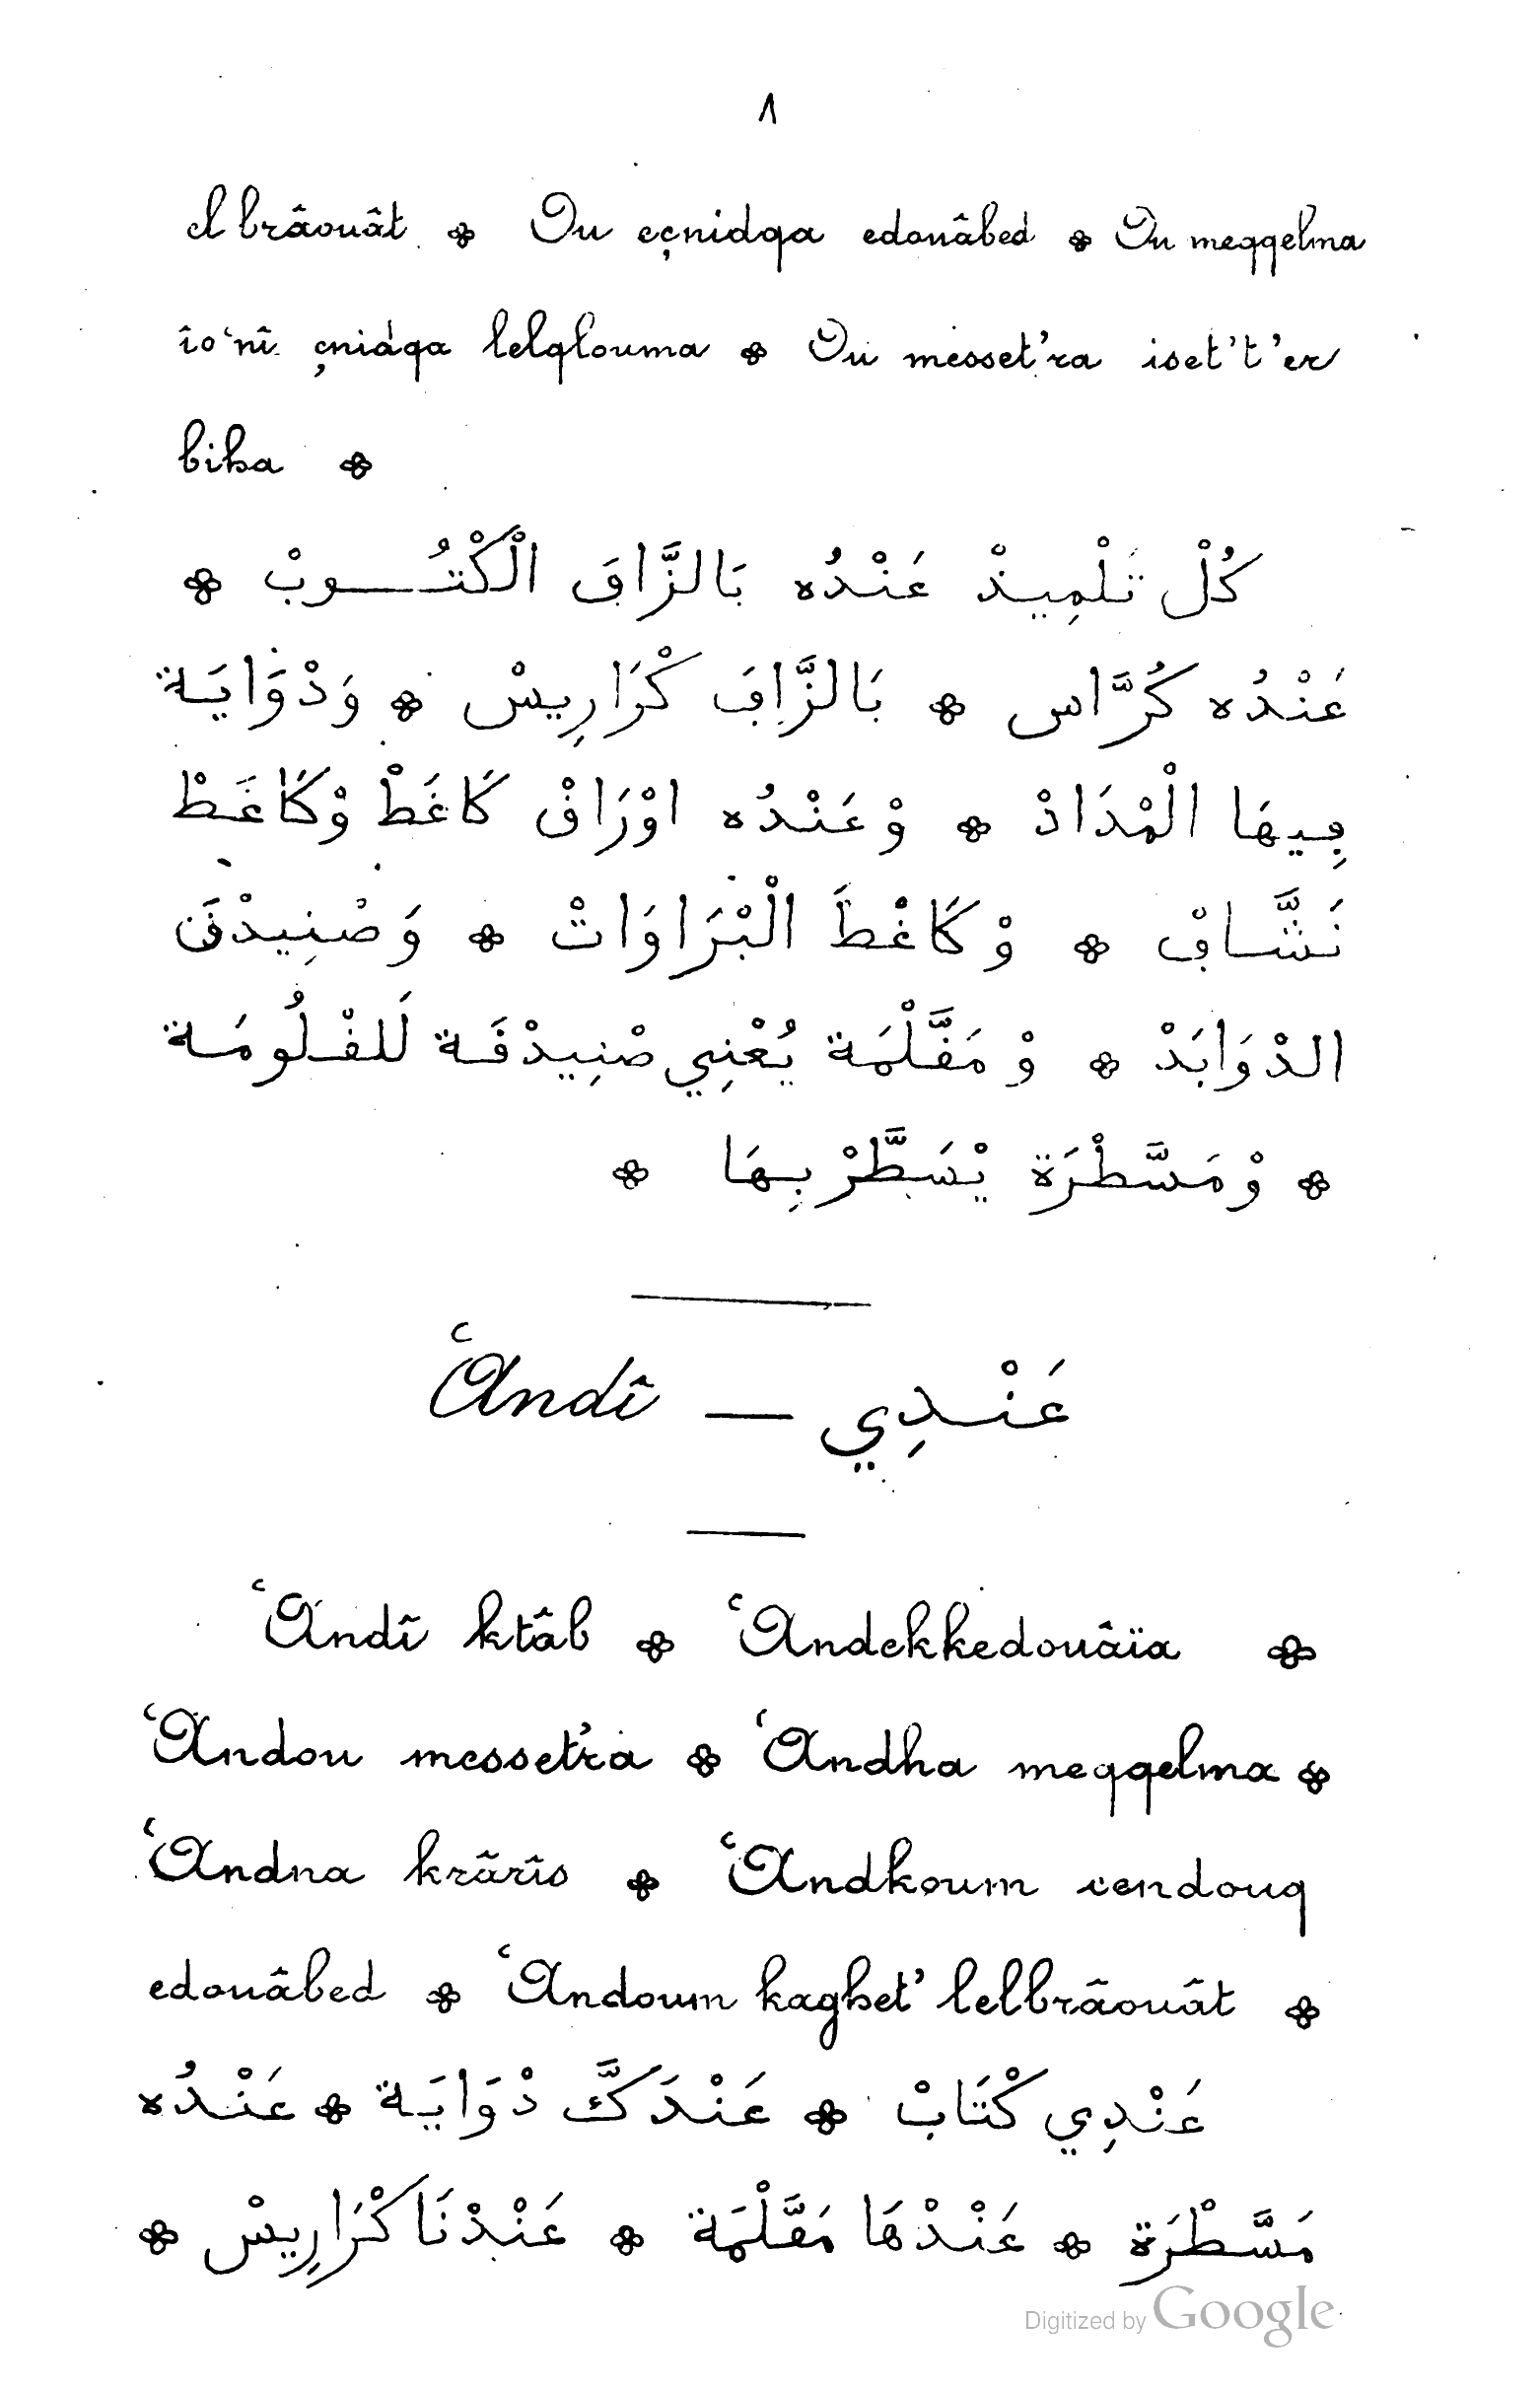 ٨
el brâouât ✤ Ou eçnidqa edouâbed ✤ Ou meqqelma
îo‘nî çnidqa lelqlouma ✤ Ou messet’ra iset’t’er
biha ✤
كُلْ تَلْمِيذْ عَنْدُه بَالزَّافَ الْكْتُـــوبْ ✤
عَنْدُه كُرَّاس ✤ بَالزَّافَ كْرَارِيسْ ✤ وَدْوَايَة
فِيهَا الْمْدَادْ ✤ وْعَنْدُه اوْرَاقْ كَاغَطْ وْكَاغَطْ
نَشَّافْ ✤ وْكَاغْطَ الْبْرَاوَاتْ ✤ وَصْنِيدْقَ
الدْوَابَدْ ✤ وْ مَقَّلْمَة يُعْنِي صْنِيدْقَة لَلقْلُومَة
✤ وْمَسَّطْرَة يْسَطَّرْ بِهَا ✤
عَنْدِي — ‘Andî
‘Andî ktâb ✤ ‘Andekkedouâïa ✤
‘Andou messet’ra ✤ ‘Andha meqqelma ✤
‘Andna krârîs ✤ ‘Andkoum cendouq
edouâbed ✤ ‘Andoum kaghet’ lelbrâouât ✤
عَنْدِي كْتَابْ ✤ عَنْدَكَّ دْوَايَة ✤ عَنْدُه
مَسَّطْرَة ✤ عَنْدْهَا مَقَّلْمَة ✤ عَنْدْنَا كْرَارِيسْ ✤
Digitized by Google